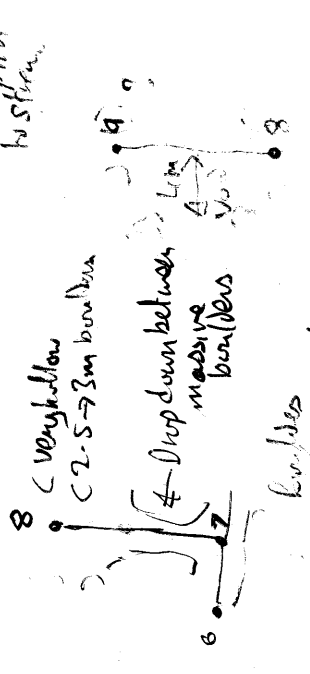 to stream
9 ?
8
4m
8
( very hollow
( 2.5→3m boulders
← Drop down between
massive
boulders
7
6
boulders